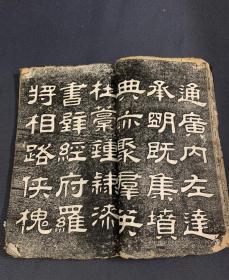 通廣内左達
承明既集墳
典亦聚群英
杜藁鍾隸漆
書壁經府羅
將相路俠槐